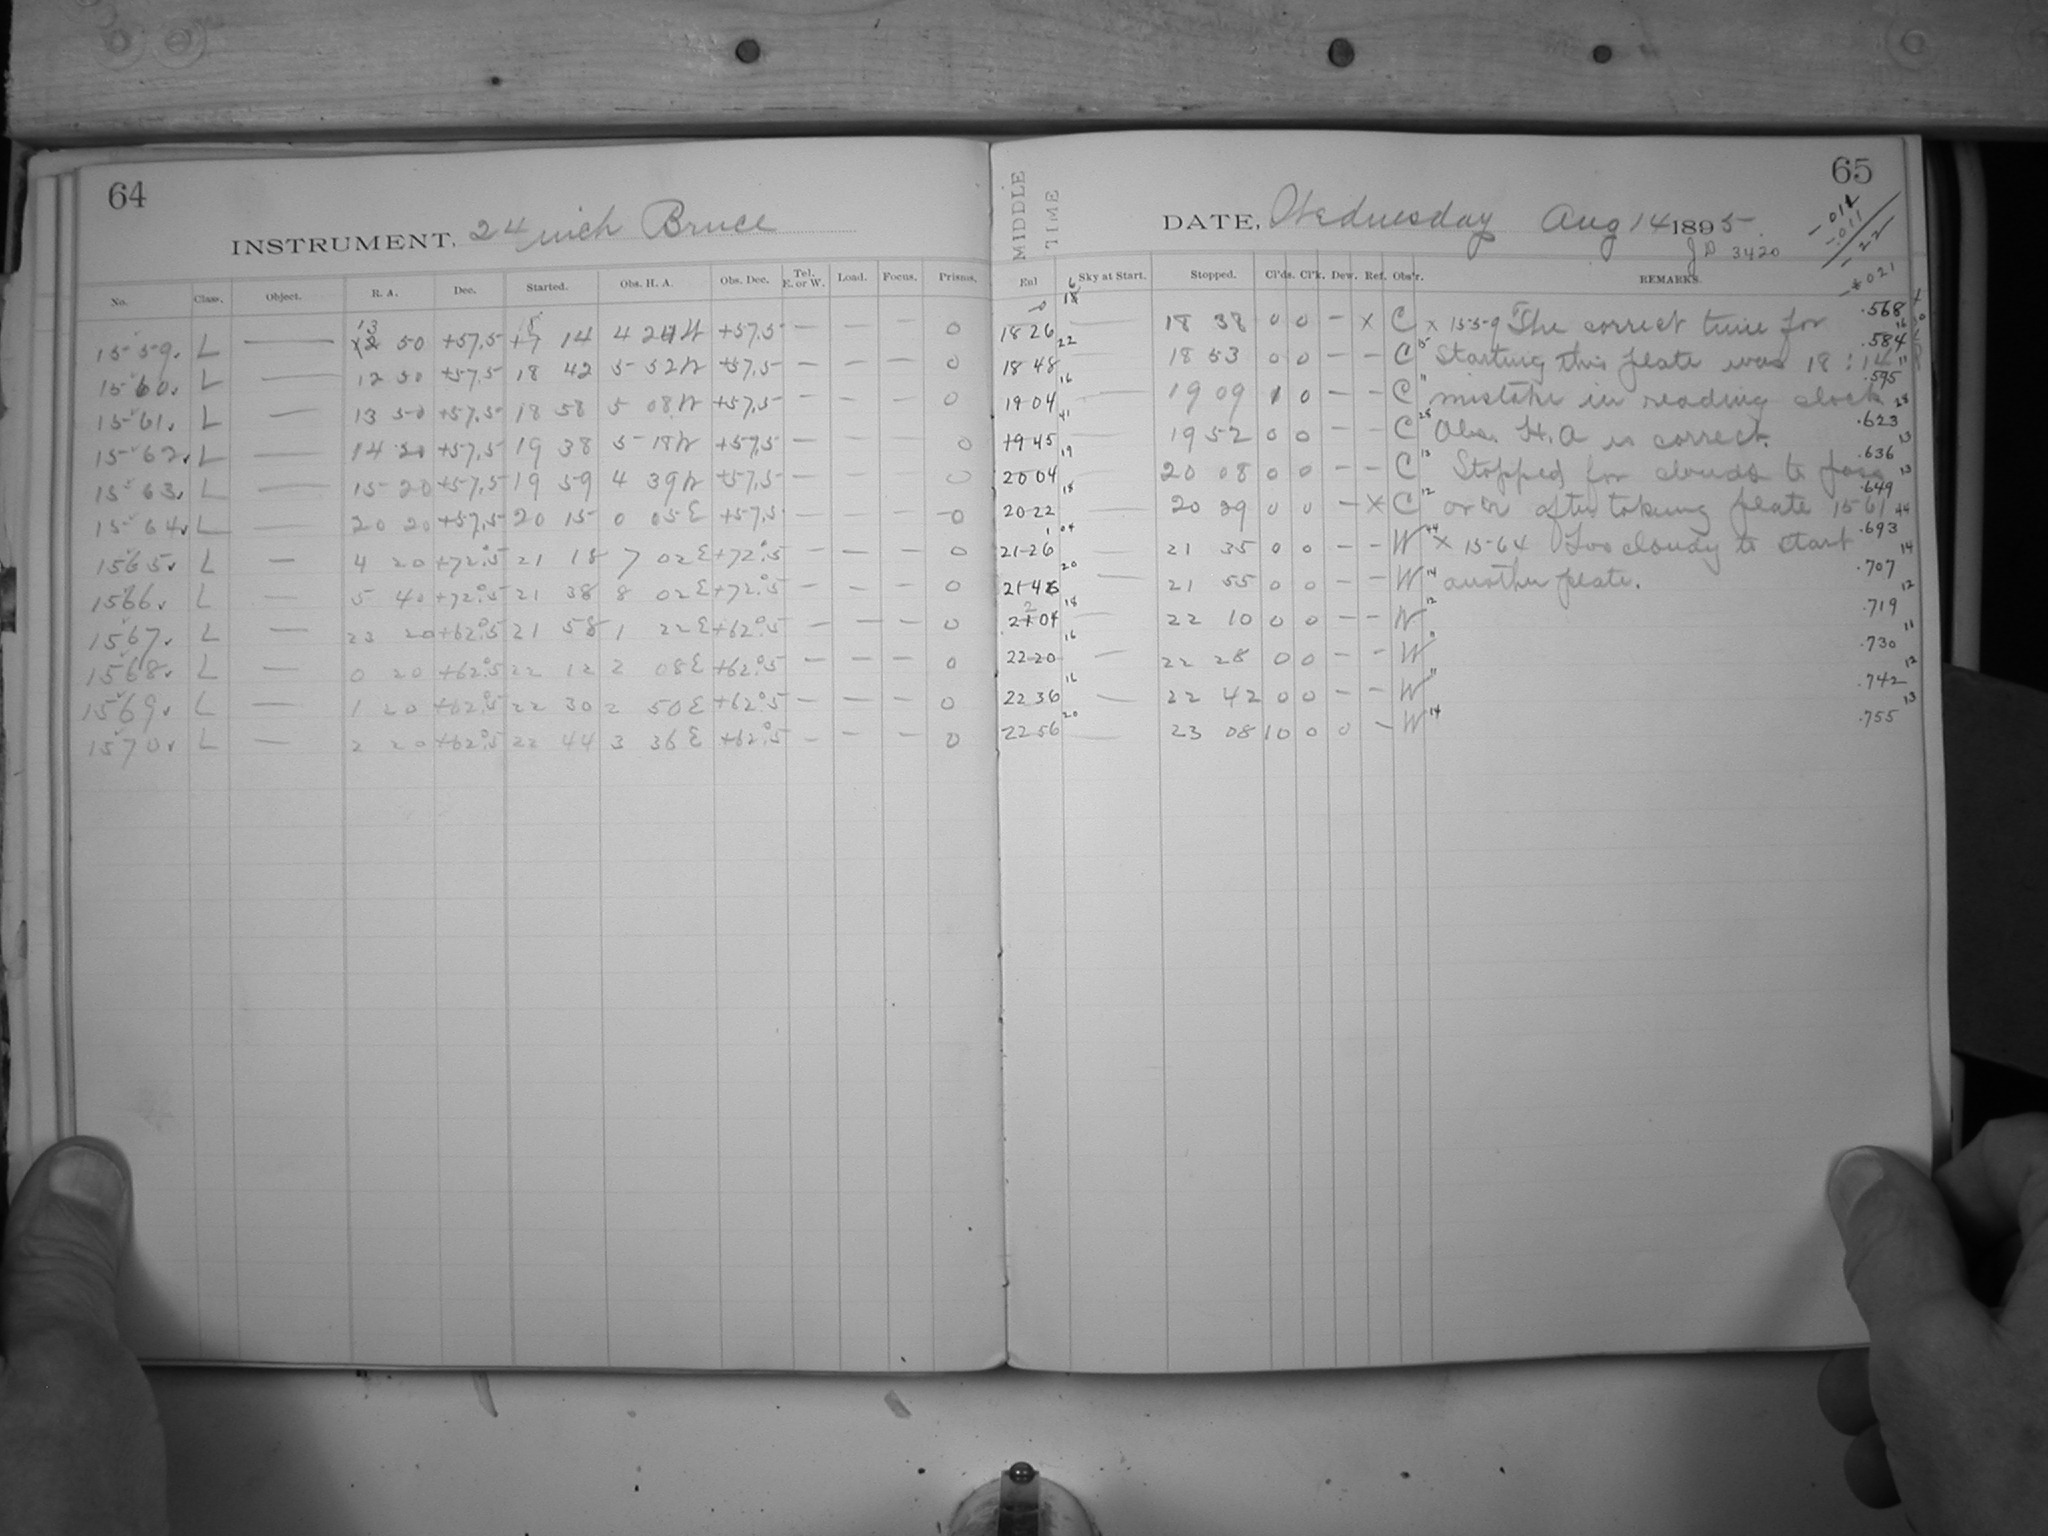 64
INSTRUMENT, 24 inch Bruce
No. Class. Object. R. A. Dec. Started. Obs. H. A. Obs. Dec. Tel. E. or W. Load. Focus. Prisms.
1559. L — 13 50 +57.5 14 4 24W +57.5 — — — 0
1560. L — 12 50 +57.5 18 42 5 52W +57.5 — — — 0
1561. L — 13 50 +57.5 18 58 5 08W +57.5 — — — 0
1562. L — 14 20 +57.5 19 38 5 18W +57.5 — — — 0
1563. L — 15 20 +57.5 19 59 4 39W +57.5 — — — 0
1564. L — 20 20 +57.5 20 15 0 05E +57.5 — — — 0
1565. L — 4 20 +72°.5 21 18 7 02E +72°.5 — — — 0
1566. L — 5 40 +72°.5 21 38 8 02E +72°.5 — — — 0
1567. L — 23 20 +62°.5 21 58 1 22E +62°.5 — — — 0
1568. L — 0 20 +62°.5 22 12 2 08E +62°.5 — — — 0
1569. L — 1 20 +62°.5 22 30 2 50E +62°.5 — — — 0
1570. L — 2 20 +62°.5 22 44 3 36E +62°.5 — — — 0
65
MIDDLE TIME
DATE, Wednesday Aug 14 1895.
JD 3420
Sky at Start. Stopped. Cl'ds. Cl'k. Dew. Ref. Obs'r. REMARKS.
18 26 — 18 38 0 0 — x C x 1559 The correct time for .568
18 48 22 — 18 53 0 0 — — C 15 Starting this plate was 18:14 .584 16
19 04 16 — 19 09 1 0 — — C 11 mistake in reading clock .595 11
19 45 41 — 19 52 0 0 — — C 28 Obs. H.A is correct. .623 28
20 04 19 — 20 08 0 0 — — C 13 Stopped for clouds to pass .636 13
20 22 18 — 20 29 0 0 — x C 12 over after taking plate 1561 .649 13
21 26 1 04 — 21 35 0 0 — — W 44 x 1564 Too cloudy to start .693 44
21 46 20 — 21 55 0 0 — — W 14 another plate. .707 14
22 04 18 — 22 10 0 0 — — W 12 .719 12
22 20 16 — 22 28 0 0 — — W 11 .730 11
22 36 16 — 22 42 0 0 — — W 11 .742 12
22 56 20 — 23 08 10 0 0 — W 14 .755 13